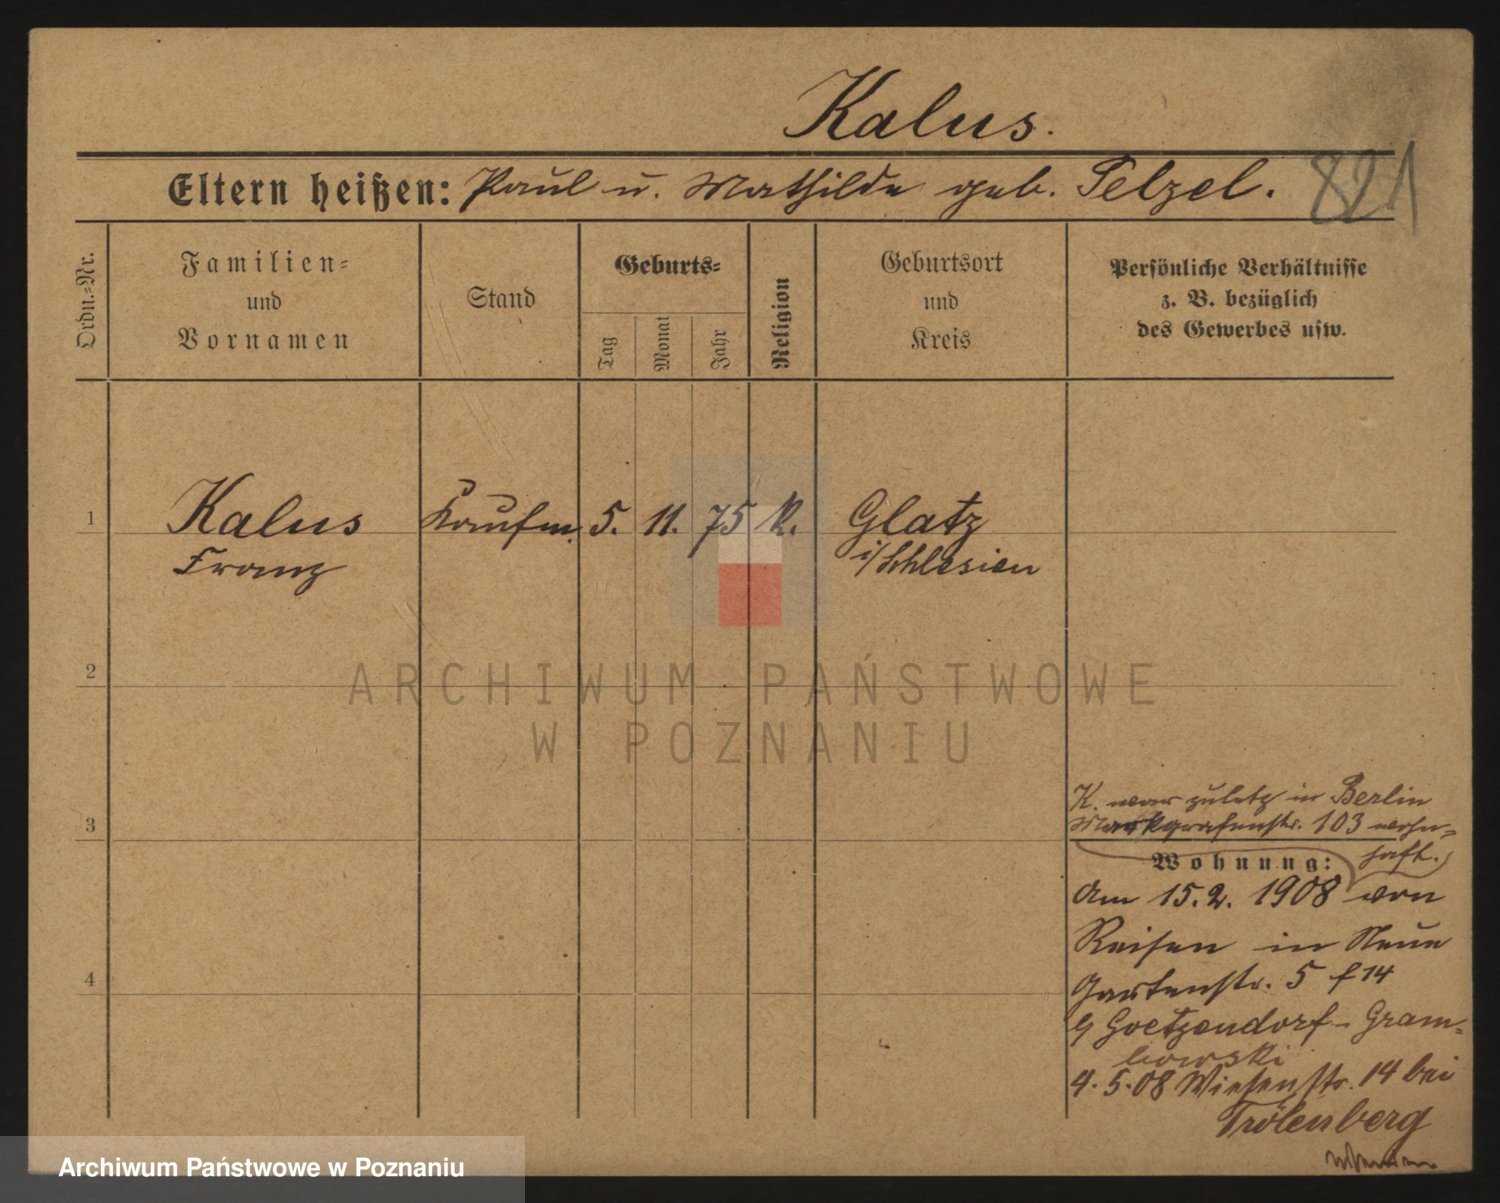 Kalus.
Eltern heißen: Paul u. Mathilde geb. Pelzel.
821
Ordn.-Nr.
Familien-
und
Vornamen
Stand
Geburts-
Tag
Monat
Jahr
Religion
Geburtsort
und
Kreis
Persönliche Verhältnisse
z. B. bezüglich
des Gewerbes usw.
1 Kalus Kaufm. 5. 11. 75 K. Glatz
Franz i/Schlesien
ARCHIWUM PAŃSTWOWE
W POZNANIU
2
3
4
K. war zuletz in Berlin
Markgrafenstr. 103 wohn=
haft.
Wohnung:
Am 15.2. 1908 von
Reisen in Neue
Gartenstr. 5 f 14
b/ Goetzendorf-Gram=
bowski
4.5.08 Wiesenstr. 14 bei
Trölenberg
Archiwum Państwowe w Poznaniu